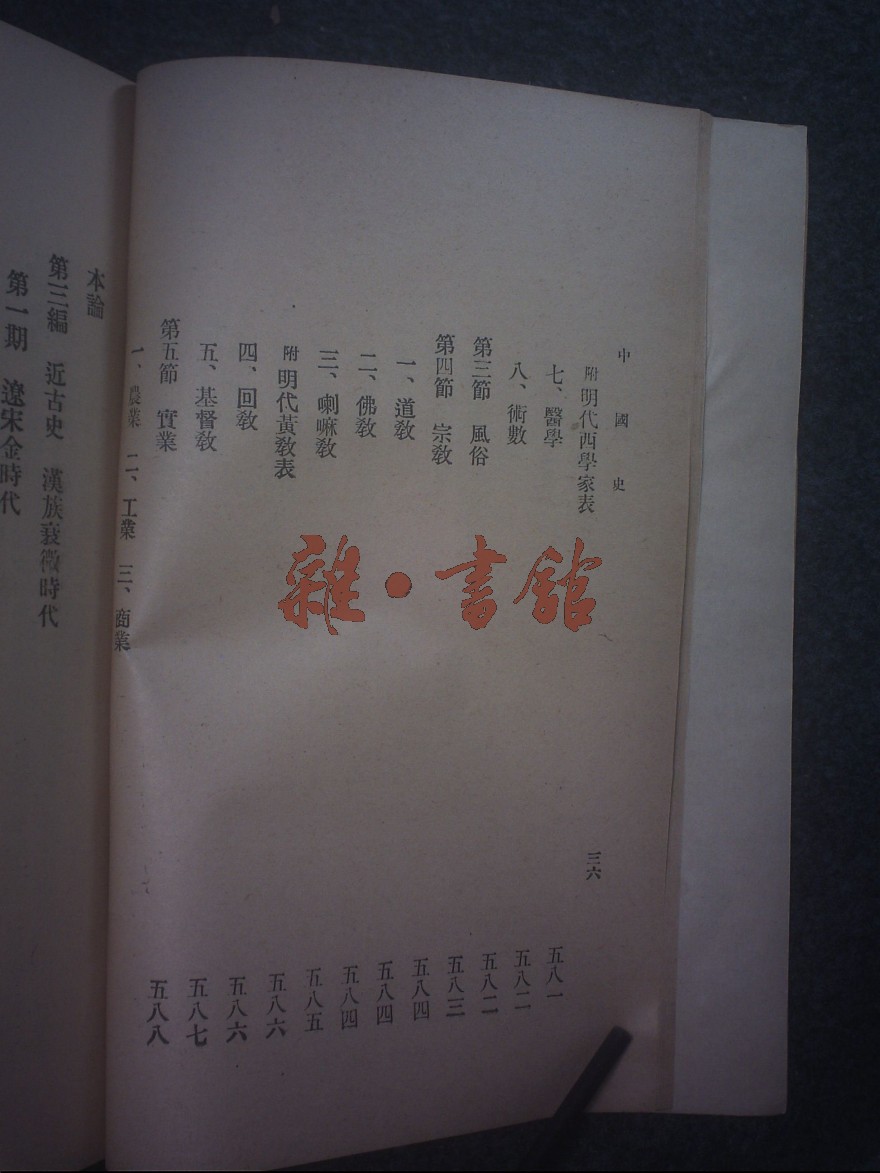 中國史 三六
附 明代西學家表 五八一
七、醫學 五八二
八、術數 五八二
第三節 風俗 五八三
第四節 宗教 五八四
一、道教 五八四
二、佛教 五八四
三、喇嘛教 五八五
附 明代黃教表 五八六
四、回教 五八六
五、基督教 五八七
第五節 實業 五八八
一、農業 二、工業 三、商業
本論
第三編 近古史 漢族衰微時代
第一期 遼宋金時代
雜·書館